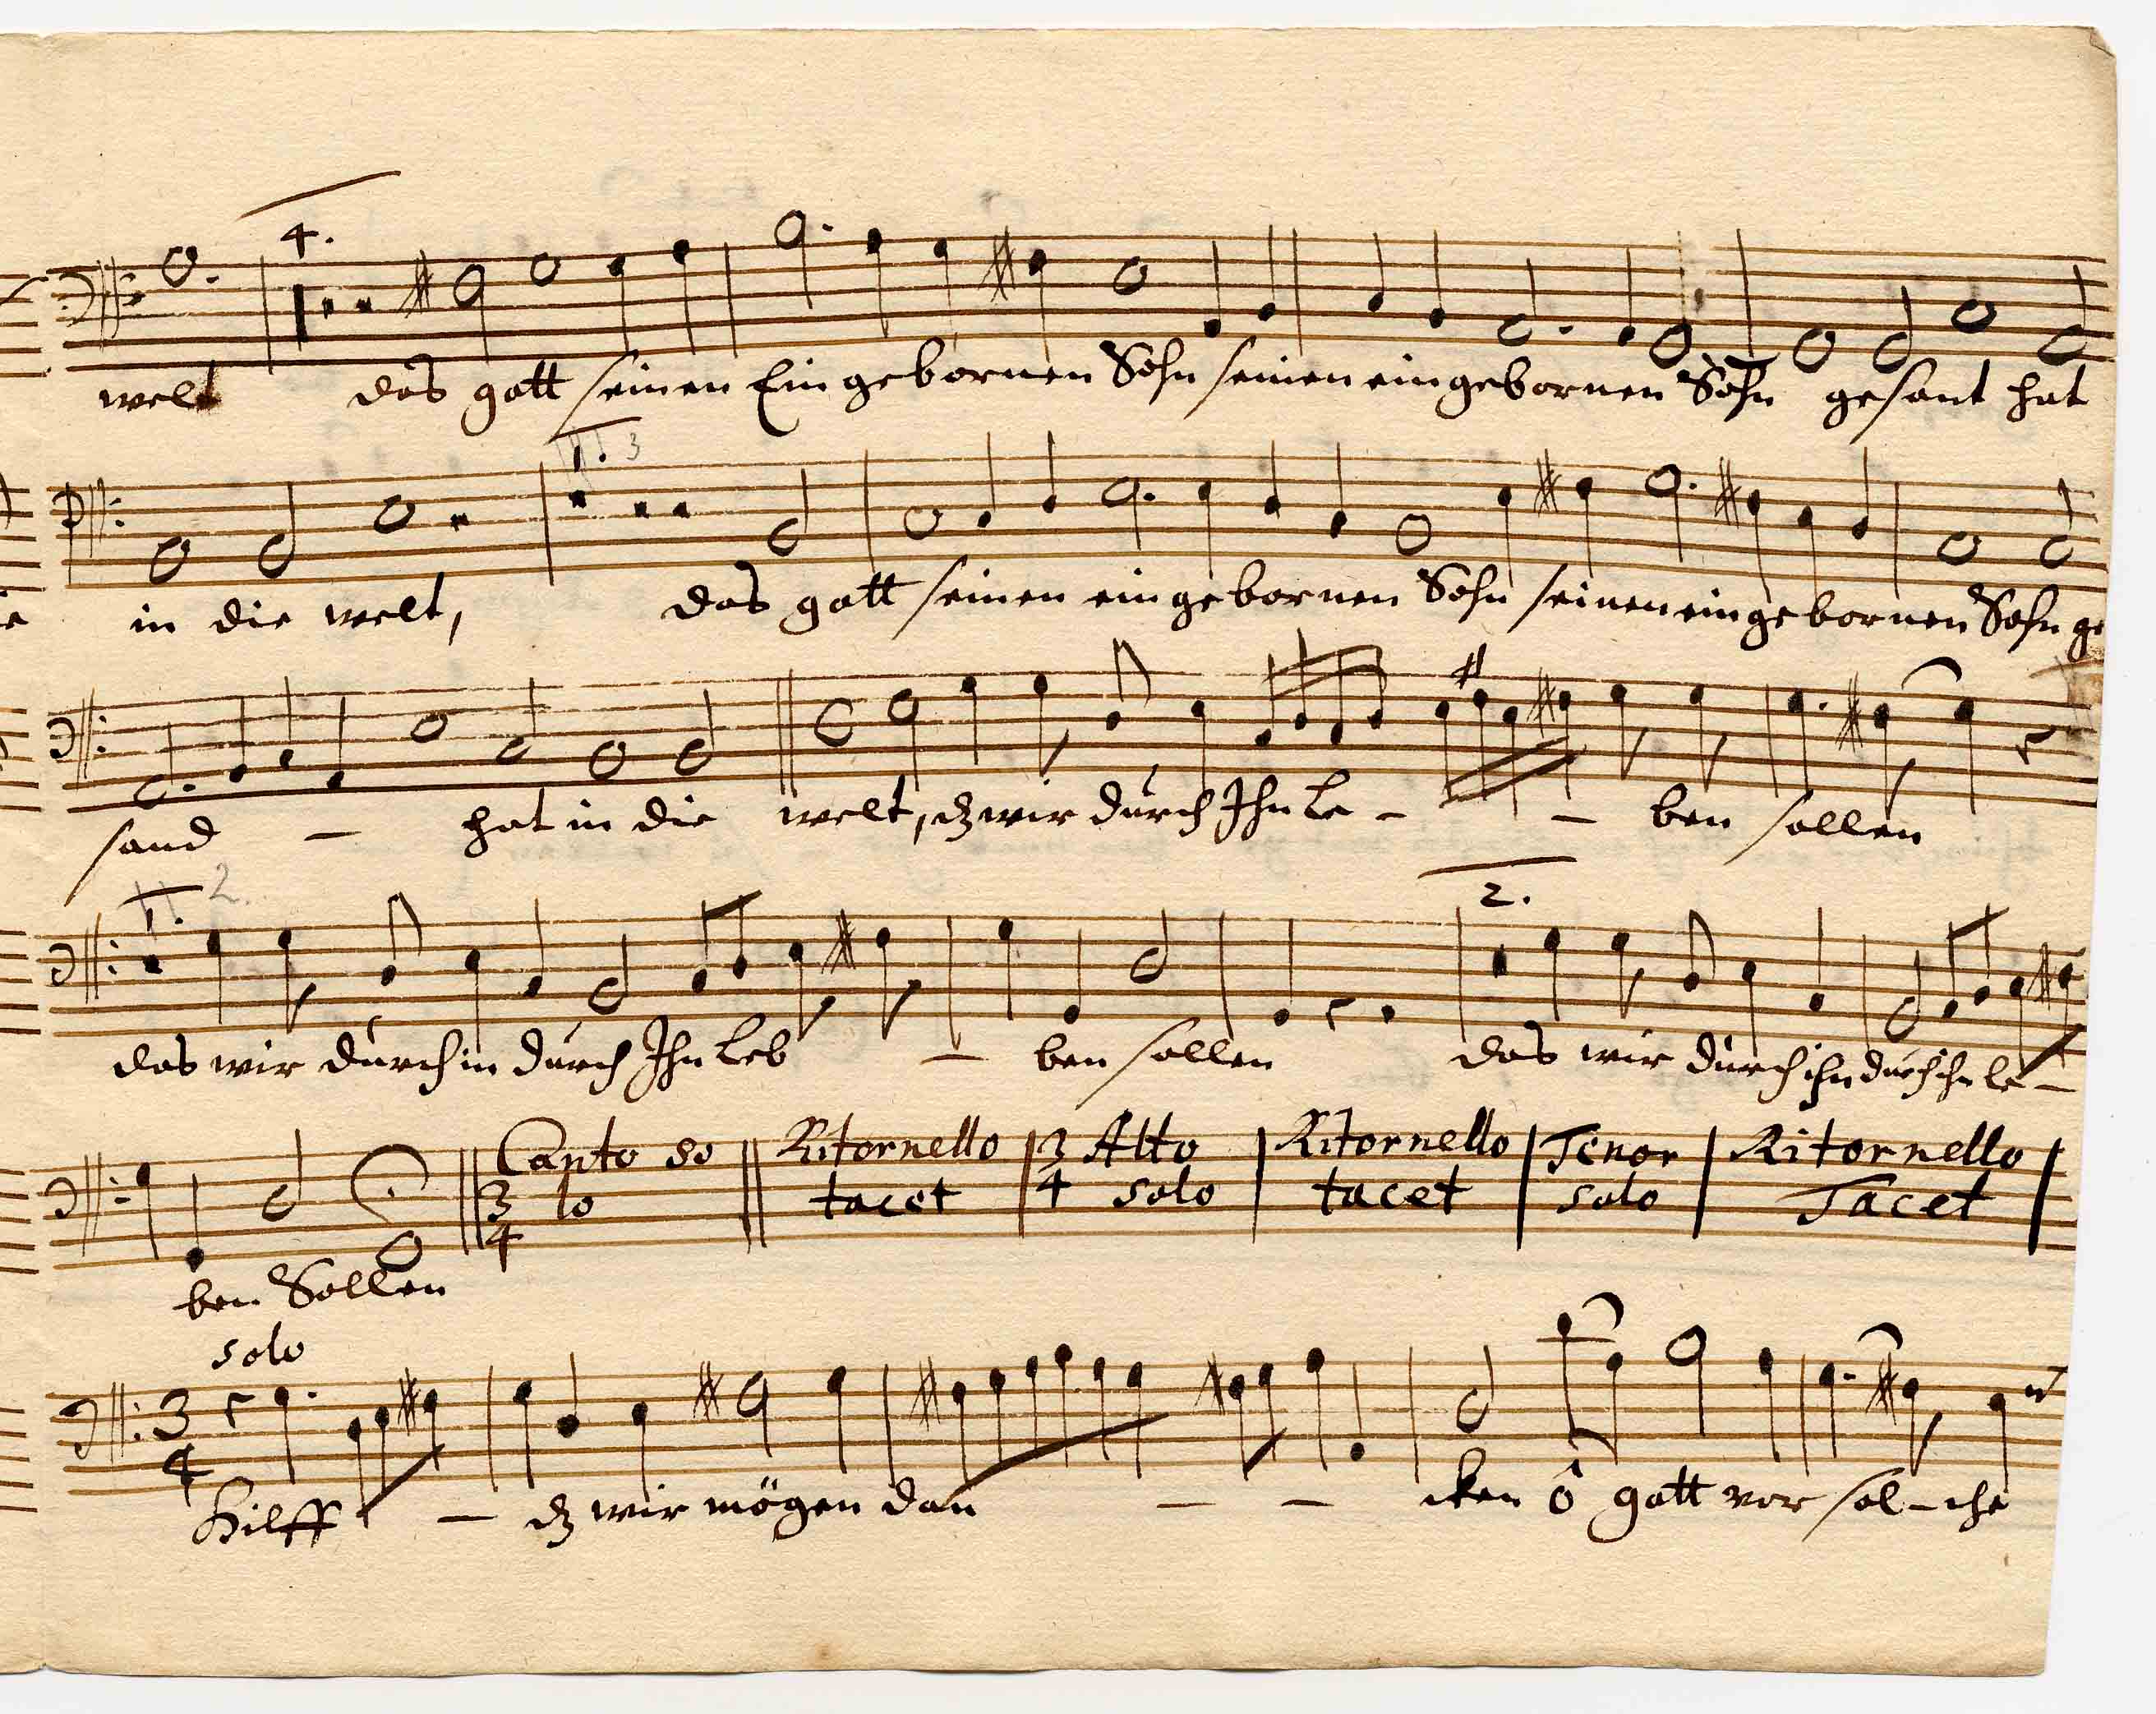 4.
welt das gott seinen Ein gebornen Sohn seinen eingebornen Sohn gesant hat
1. 3
in die welt, das gott seinen ein gebornen Sohn seinen eingebornen Sohn ge
sand – hat in die welt, dz wir durch Ihn Le – – ben sollen
1. 2. 2.
das wir durch in durch Ihn Leb – ben sollen das wir durch ihn durch ihn le –
Canto so Ritornello 3 Alto Ritornello Tenor Ritornello
3 lo tacet 4 solo tacet solo Tacet
4
ben Sollen
solo
3
4
Hilff – dz wir mögen dan – – cken ô gott vor sol – che